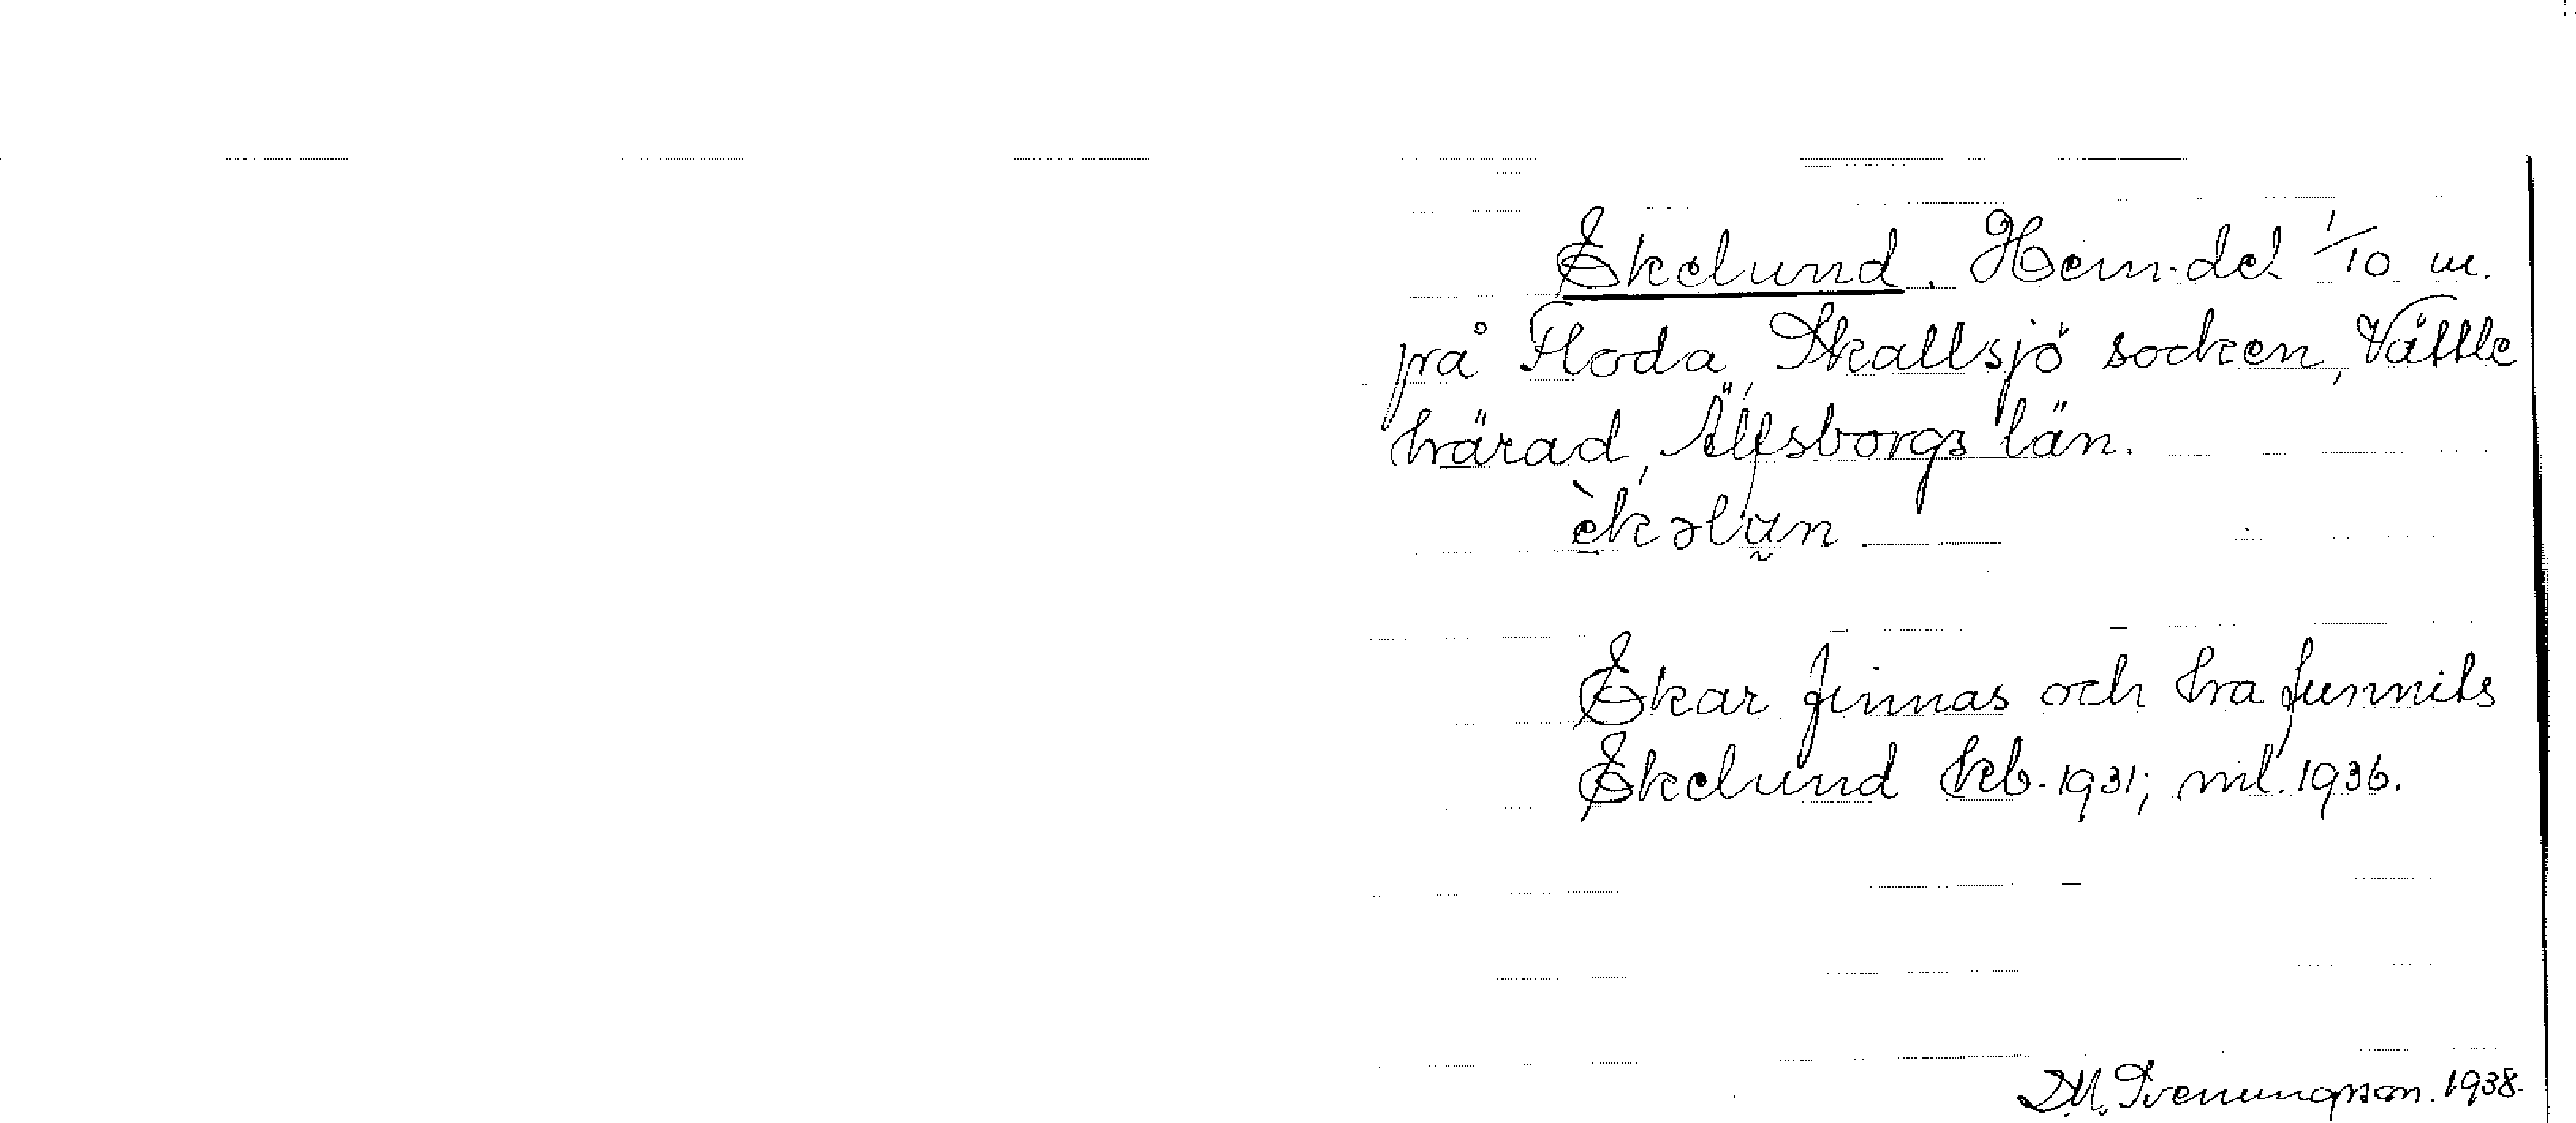 Ekelund. Hem.del 1/10 m.
på Floda, Skallsjö socken, Vättle
härad, Älfsborgs län.
èkəlun
Ekar finnas och ha funnits
Ekelund kb. 1931; ml. 1936.
D.M. Svenungsson. 1938.